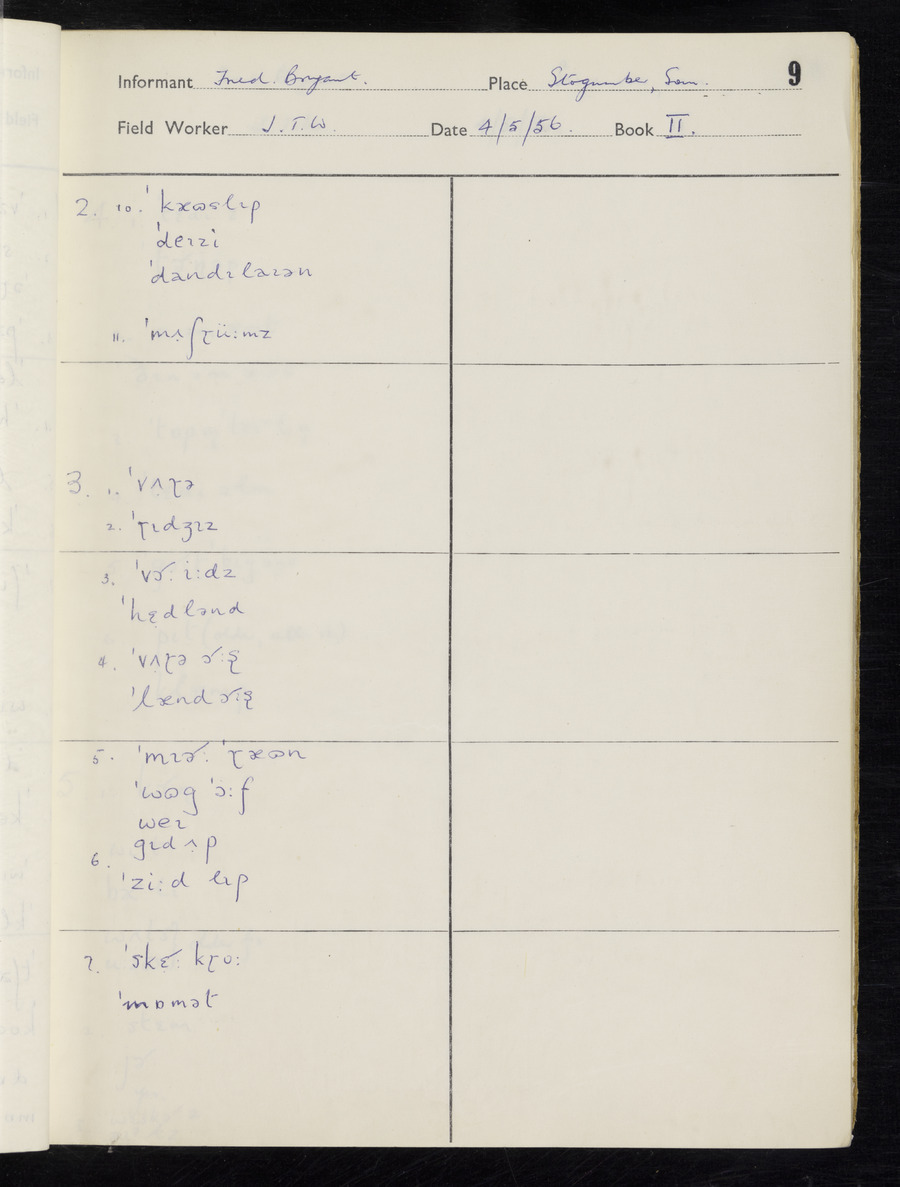 9
Informant Fred. Bryant. Place Stogumber, Som.
Field Worker J.T.W. Date 4/5/56. Book II.
2. 10. ˈkæɷslɪp
ˈdeɪzi
ˈdandɪlaɪən
11. ˈmʌ̣ʃɽüːmz
3. 1. ˈvʌɽə
2. ˈɽɪdʒɪz
3. ˈvɔ˞ː iːdz
ˈhɛ̣dlənd
4. ˈvʌɽə
ˈlænd
5. ˈmɪə˞ː ˈɽæɷn
ˈwɷg ˈɔːf
weɪ
gɪd ʌp
6. ˈziːd lɪp
7. ˈskɛ˞ː kɽoː
ˈmɒmət